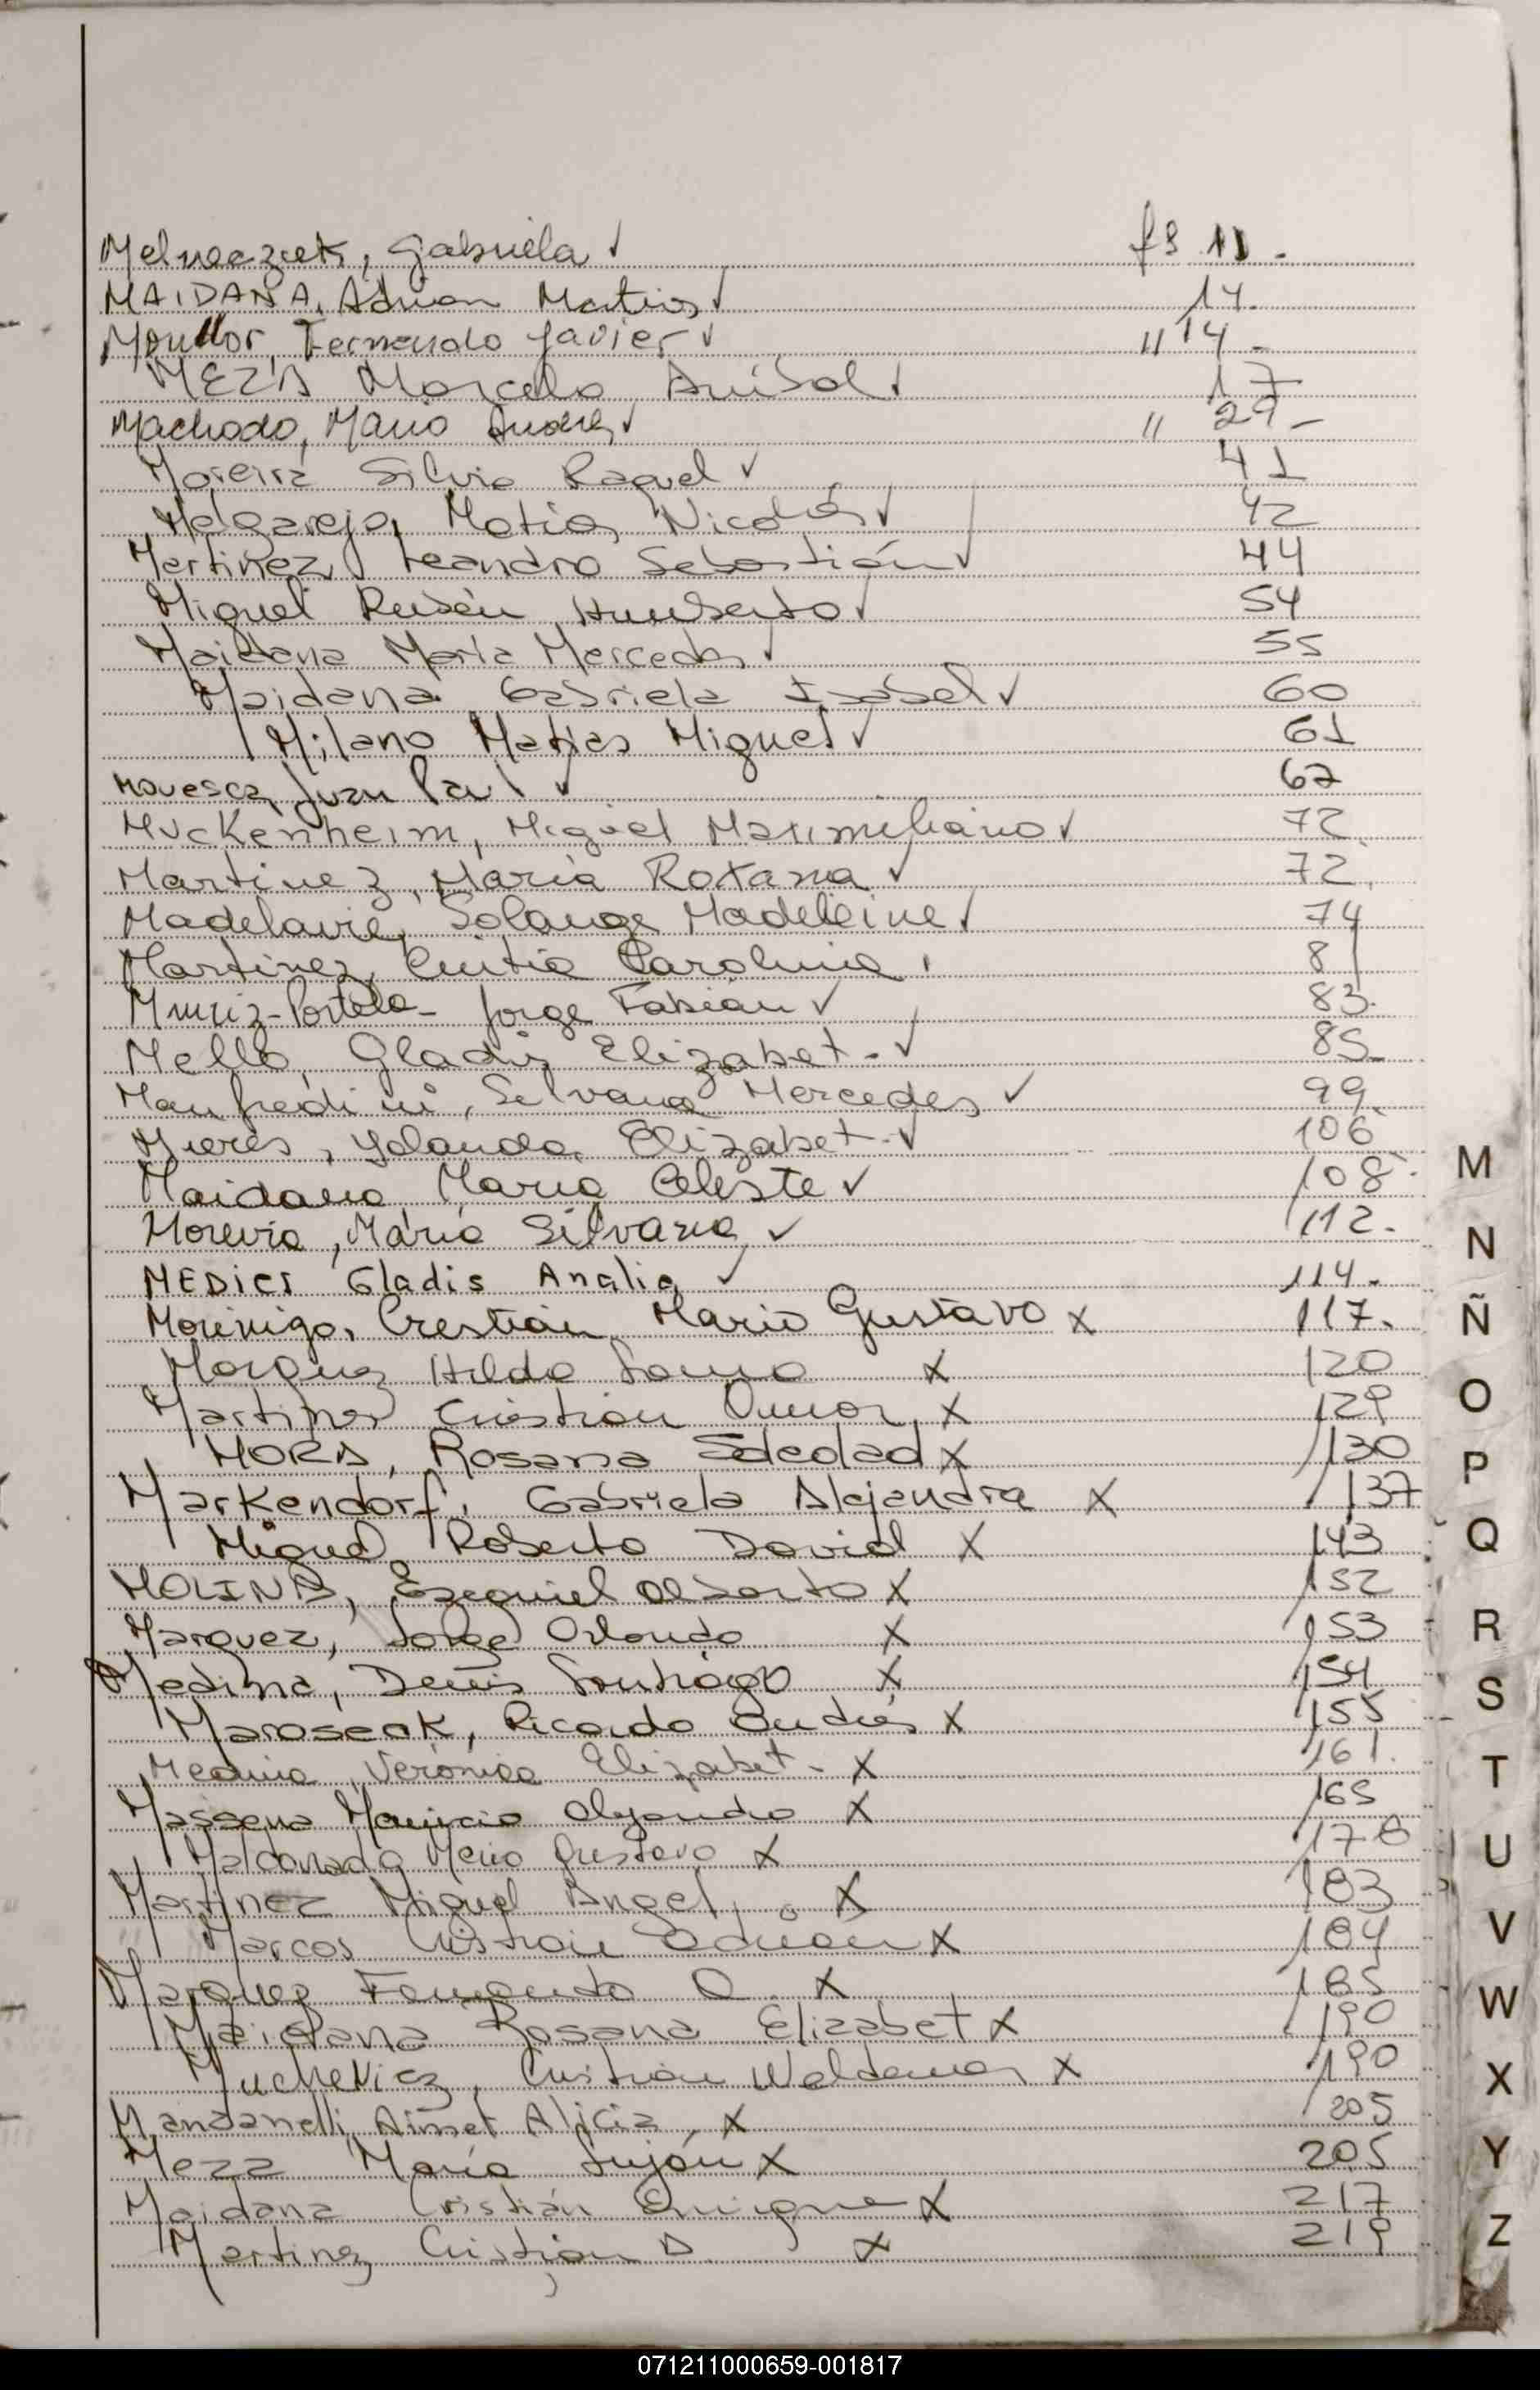 Melneczuk, Gabriela ✓ fs 11.
MAIDANA, Adrian Matias ✓ 14.
Fernando Javier ✓ " 14 -
MEZA Marcelo Anibal ✓ 17
Machado, Mario Andres ✓ " 29 -
Moreira Silvia Raquel ✓ 41
Melgarejo, Matias Nicolás ✓ 42
Martinez Leandro Sebastián ✓ 44
Miguel Rubén Humberto ✓ 54
Maidana Maria Mercedes ✓ 55
Maidana Gabriela Isabel ✓ 60
Milano Matias Miguel ✓ 61
Juan Paul ✓ 67
Muckenheim, Miguel Maximiliano ✓ 72
Martinez, Maria Roxana ✓ 72.
Madelavie, Solange Madeleine ✓ 74
Martinez, Cintia Carolina 81
Muniz-Portela- Jorge Fabián ✓ 83.
Mello, Gladis Elizabet - ✓ 85
Manfredini, Silvana Mercedes ✓ 99.
Mieres, Yolanda, Elizabet - ✓ 106
Maidana Maria Celeste ✓ 108
Moreira, Maria Silvana ✓ 112.
MEDICI Gladis Analia ✓ 114.
Morinigo, Cristian, Mario Gustavo x 117.
Marquez Hilda x 120
Martinez Cristian Omar, x 129
MORA, Rosana Soledad x 130
Markendorf, Gabriela Alejandra x 137
Miguel Roberto David x 143
MOLINA, Ezequiel Alberto x 152
Marquez, Jorge Orlando x 153
Medina, Denis Santiago x 154
Maroseck, Ricardo Andrés x 155
Medina Verónica Elizabet - x 161.
Massena Mauricio Alejandro x 165
Maldonado Mario Gustavo x 178
Martinez Miguel Angel, x 183
Marcos Cristian Adrian x 184
Marquez Fernando O. x 185
Maidana Rosana Elizabet x 190
Muchevicz, Cristian Waldemar x 190
Manzanelli, Aimet Alicia x 205
Meza Maria Luján x 205
Maidana Cristián Enrique x 217
Martinez Cristian D x 219
M
N
Ñ
O
P
Q
R
S
T
U
V
W
X
Y
Z
071211000659-001817